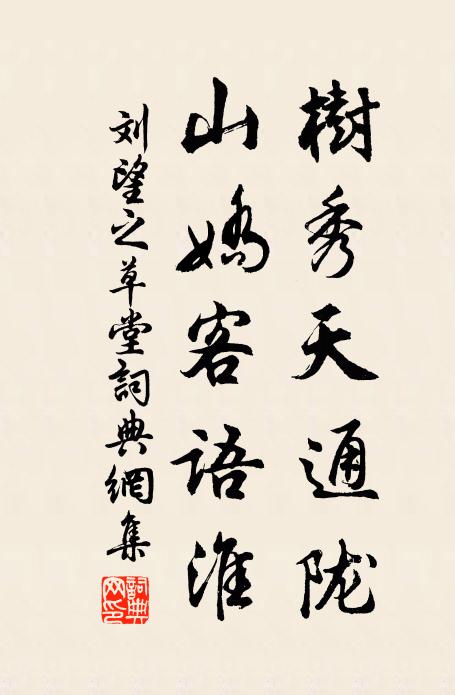 樹秀天通陇
山嬌客語淮
刘望之草堂詞典網集
詞典网印